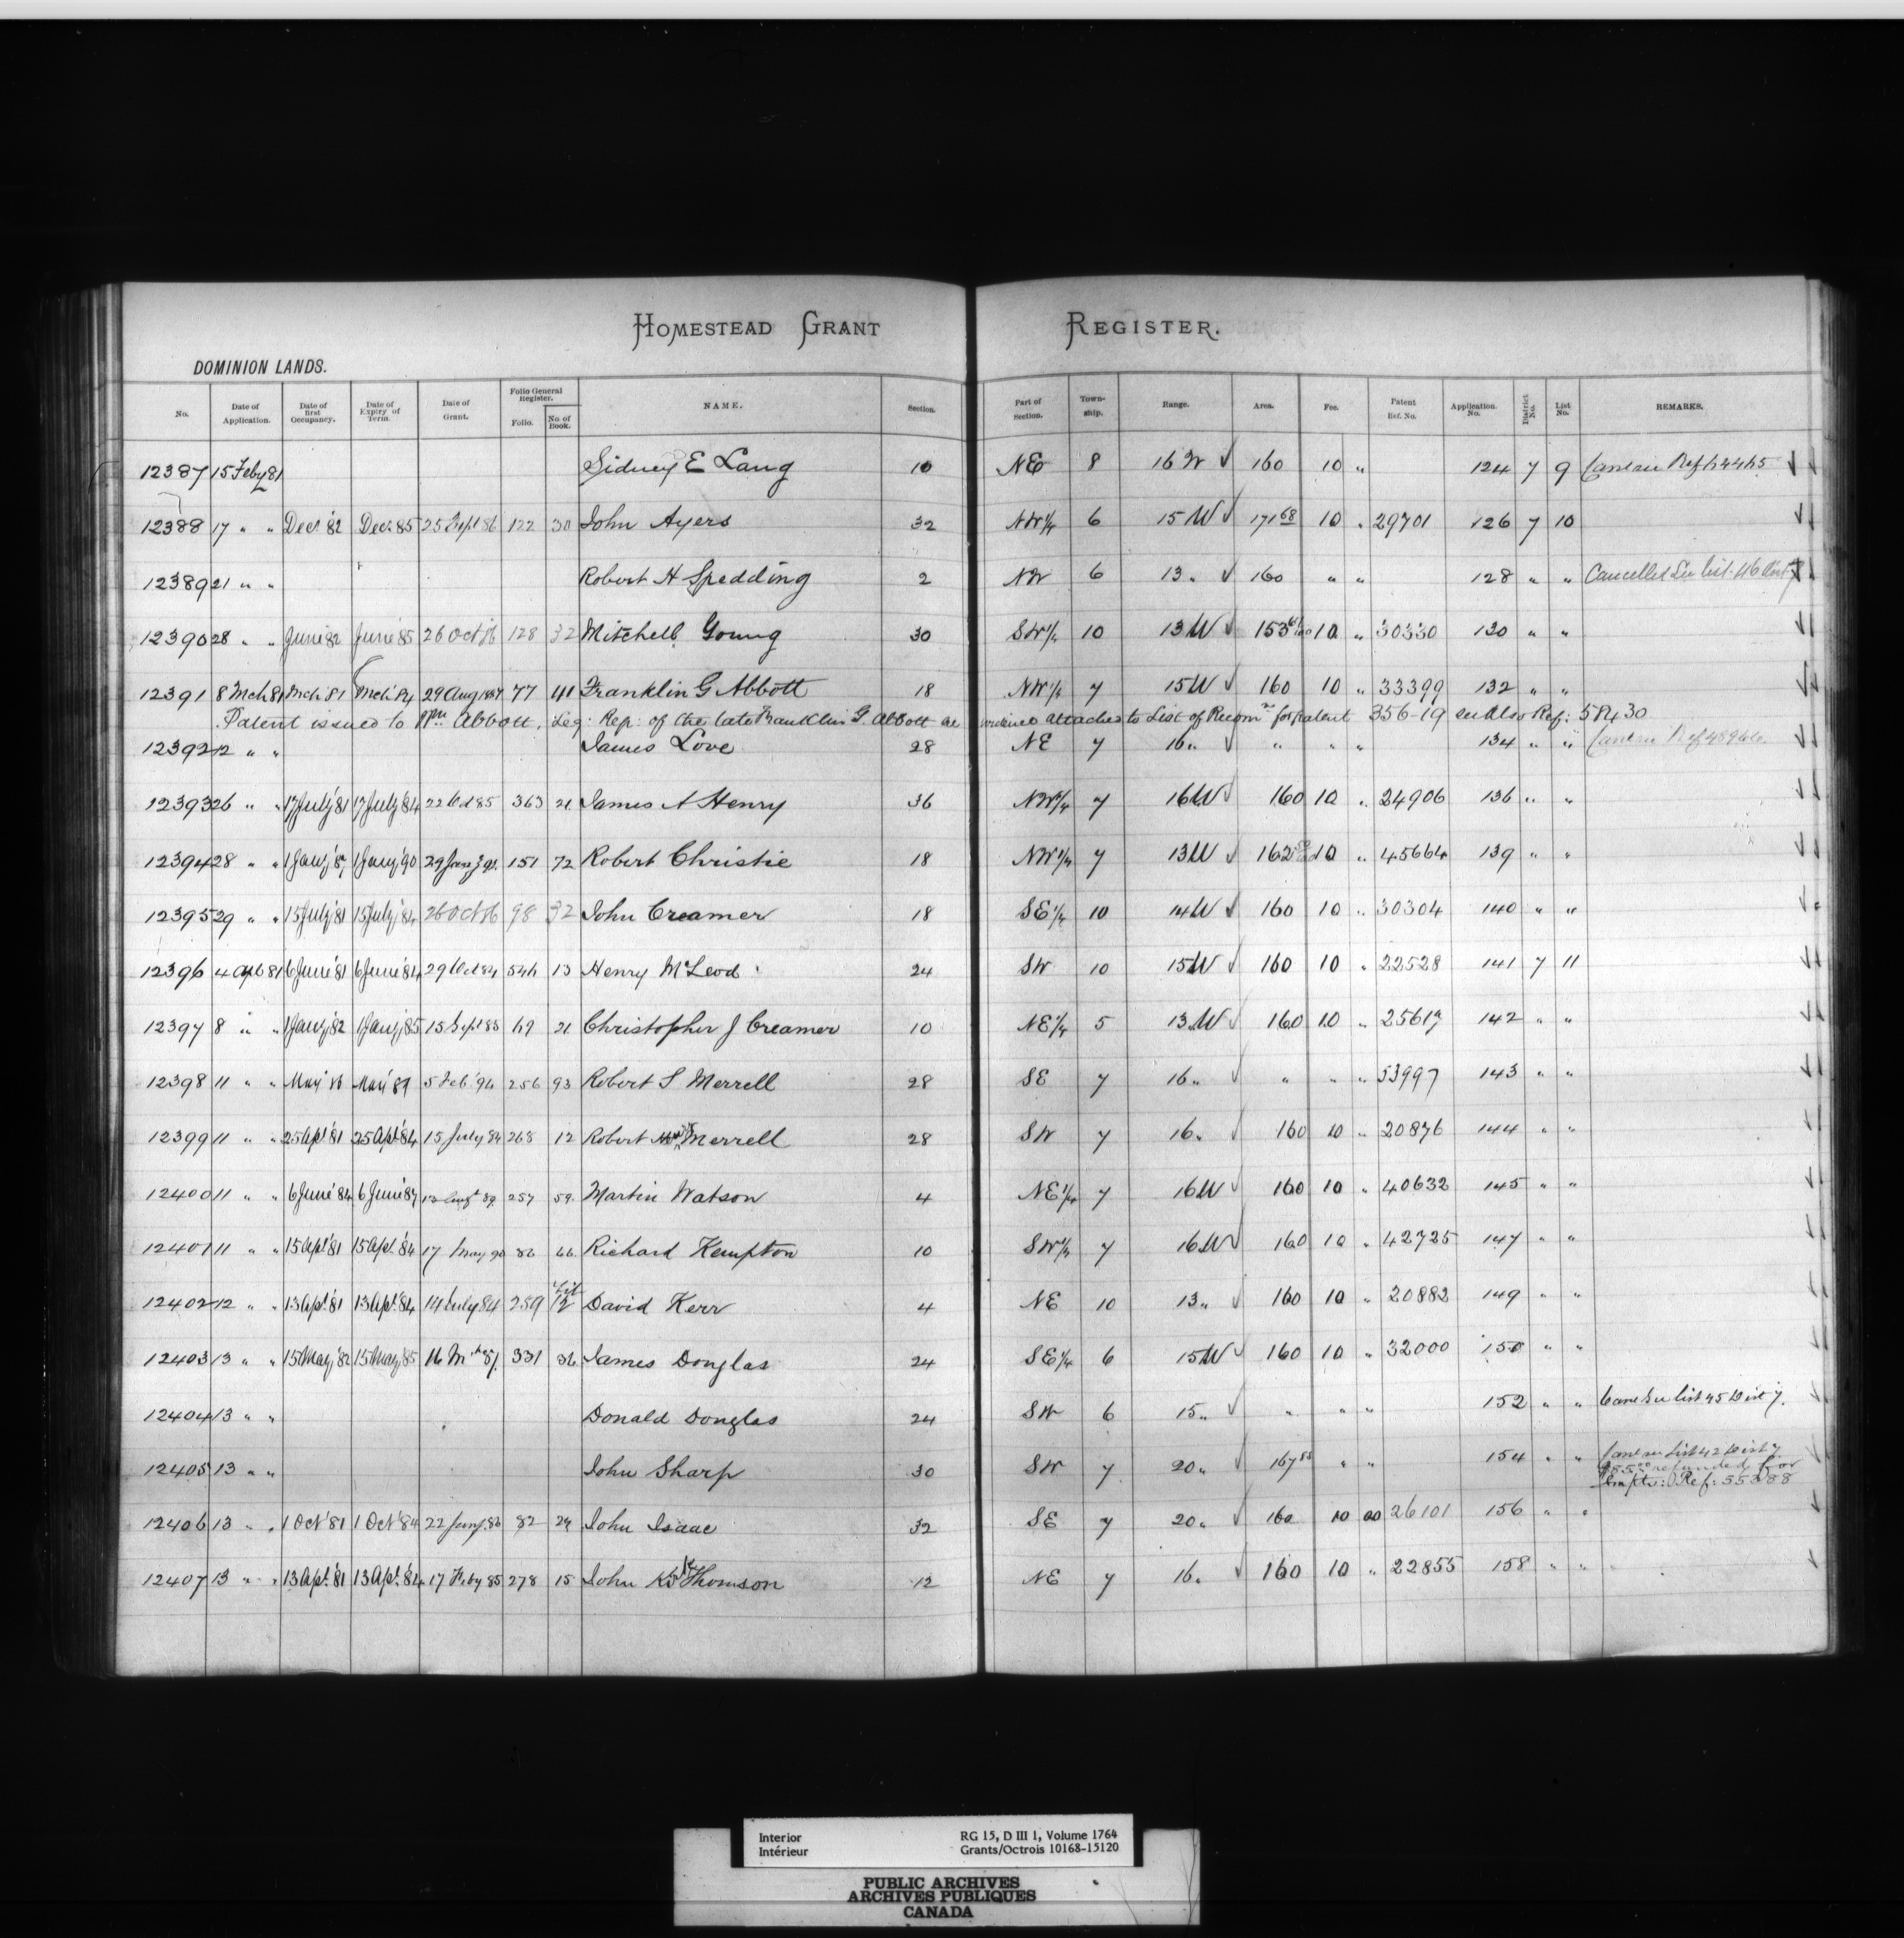 HOMESTEAD GRANT REGISTER.
DOMINION LANDS.
No. Date of Application. Date of first Occupancy. Date of Expiry of Term. Date of Grant. Folio General Register. Folio. No. of Book. NAME. Section. Part of Section. Town-ship. Range. Area. Fee. Patent Ref. No. Application. No. District No. List No. REMARKS.
12387 15 Feby 81 Sidney E Lang 10 NE 8 16 W 160 10 " 124 7 9
12388 17 " " Decr '82 Decr 85 25 Sept 86 122 30 John Ayers 32 NW 1/4 6 15 W 171 68 10 " 29701 126 7 10
12389 21 " " Robert H Spedding 2 NW 6 13 " 160 " " 128 " " Cancelled See list 46 Dist 7
12390 28 " " June '82 June '85 26 Oct 86 128 32 Mitchell Young 30 SW 1/4 10 13 W 153 10 " 30330 130 " "
12391 8 Mch 81 Mch '81 Mch '84 29 Aug 1887 77 41 Franklin G Abbott 18 NW 1/4 7 15 W 160 10 " 33399 132 " "
Patent issued to Wm Abbott, Leg: Rep: of the late Franklin G. Abbott see evidence attached to List of Recomn for patent 356-19 see also Ref: 58430
12392 12 " " James Love 28 NE 7 16 " " " " 134 " "
12393 26 " " 17 July '81 17 July '84 22 Oct 85 363 21 James A Henry 36 NW 1/4 7 16 W 160 10 " 24906 136 " "
12394 28 " " 1 Jany '87 1 Jany '90 29 Jany 91 151 72 Robert Christie 18 NW 1/4 7 13 W 162 10 " 45664 139 " "
12395 29 " " 15 July '81 15 July '84 26 Oct 86 98 32 John Creamer 18 SE 1/4 10 14 W 160 10 " 30304 140 " "
12396 4 Apl 81 6 June '81 6 June '84 29 Oct 84 546 13 Henry McLeod 24 SW 10 15 W 160 10 " 22528 141 7 11
12397 8 " " 1 Jany '82 1 Jany '85 15 Sept 85 69 21 Christopher J Creamer 10 NE 1/4 5 13 W 160 10 " 25617 142 " "
12398 11 " " May '86 May '89 5 Feb '94 256 93 Robert S Merrell 28 SE 7 16 " " " " 53997 143 " "
12399 11 " " 25 Apl '81 25 Apl '84 15 July 84 268 12 Robert Merrell 28 SW 7 16 " 160 10 " 20876 144 " "
12400 11 " " 6 June '84 6 June '87 13 Augt 89 257 59 Martin Watson 4 NE 1/4 7 16 W 160 10 " 40632 145 " "
12401 11 " " 15 Apl '81 15 Apl '84 17 May 90 86 66 Richard Kempton 10 SW 1/4 7 16 W 160 10 " 42725 147 " "
12402 12 " " 13 Apl '81 13 Apl '84 14 July 84 259 12 David Kerr 4 NE 10 13 " 160 10 " 20882 149 " "
12403 13 " " 15 May '82 15 May '85 16 Mch 87 331 36 James Douglas 24 SE 1/4 6 15 W 160 10 " 32000 150 " "
12404 13 " " Donald Douglas 24 SW 6 15 " " " " 152 " " Canc See list 45 Dist 7.
12405 13 " " John Sharp 30 SW 7 20 " 167 " " 154 " " Canc see List 42 Dist 7
refunded for
Empts: Ref: 55388
12406 13 " " 1 Oct '81 1 Oct '84 22 Jany 86 82 24 John Isaac 32 SE 7 20 " 160 10 00 26101 156 " "
12407 13 " " 13 Apl '81 13 Apl '84 17 Feby 85 278 15 John Thomson 12 NE 7 16 " 160 10 " 22855 158 " "
Interior RG 15, D III 1, Volume 1764
Intérieur Grants/Octrois 10168-15120
PUBLIC ARCHIVES
ARCHIVES PUBLIQUES
CANADA